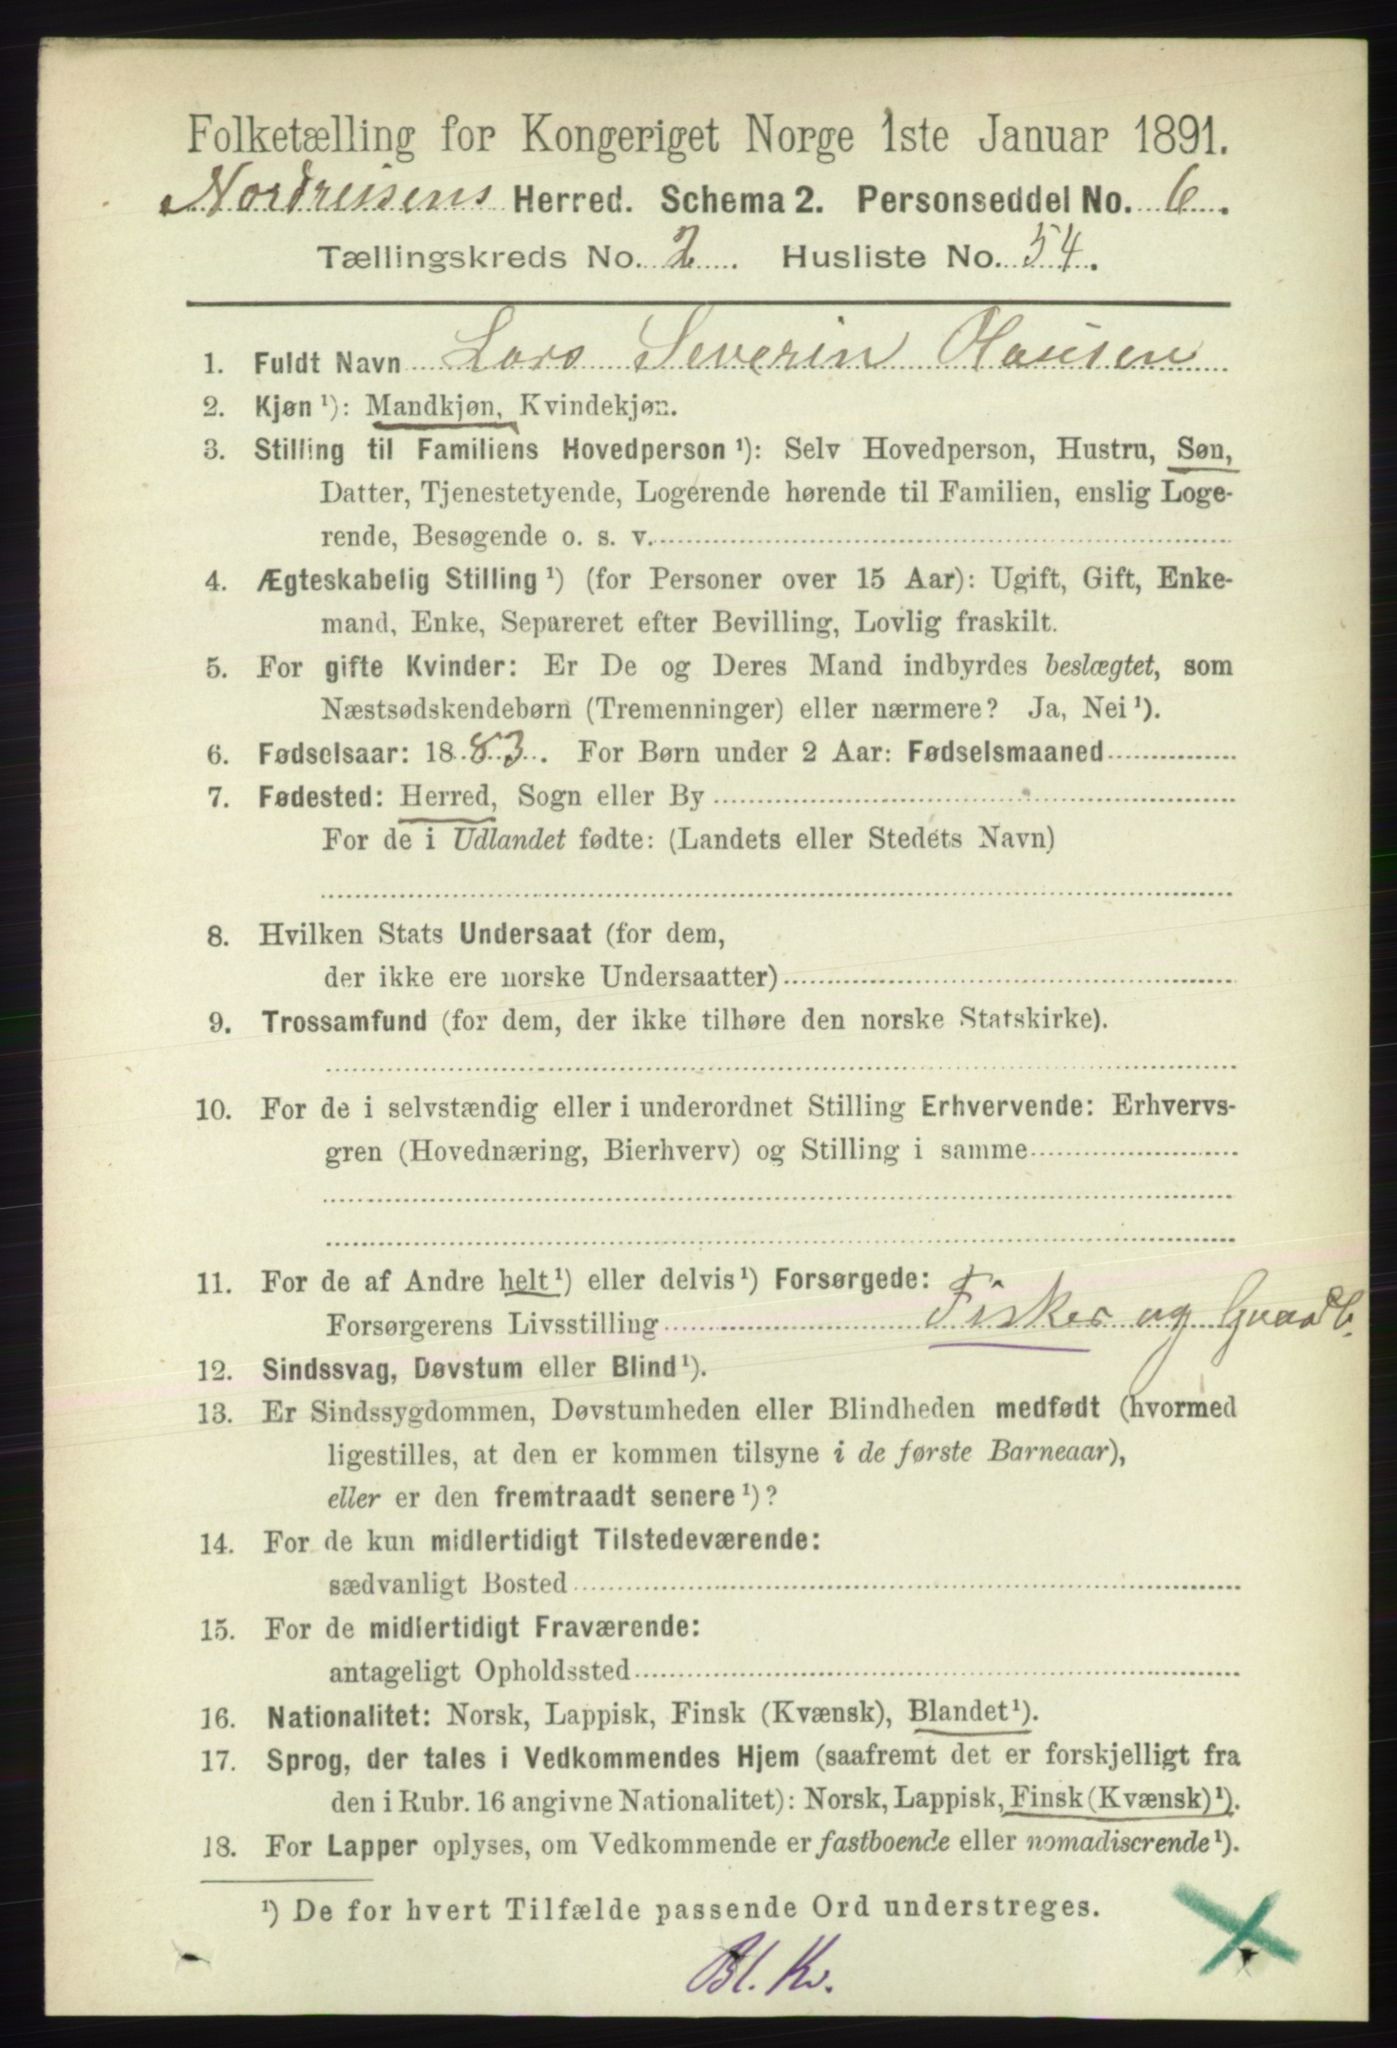 Folketælling for Kongeriget Norge 1ste Januar 1891.
Nordreisens Herred. Schema 2. Personseddel No. 6.
Tællingskreds No. 2. Husliste No. 54.
1. Fuldt Navn Lars Severin Hansen
2. Kjøn ¹): Mandkjøn, Kvindekjøn.
3. Stilling til Familiens Hovedperson ¹): Selv Hovedperson, Hustru, Søn,
Datter, Tjenestetyende, Logerende hørende til Familien, enslig Loge-
rende, Besøgende o. s. v.
4. Ægteskabelig Stilling ¹) (for Personer over 15 Aar): Ugift, Gift, Enke-
mand, Enke, Separeret efter Bevilling, Lovlig fraskilt.
5. For gifte Kvinder: Er De og Deres Mand indbyrdes beslægtet, som
Næstsødskendebørn (Tremenninger) eller nærmere? Ja, Nei ¹).
6. Fødselsaar: 1883. For Børn under 2 Aar: Fødselsmaaned
7. Fødested: Herred, Sogn eller By
For de i Udlandet fødte: (Landets eller Stedets Navn)
8. Hvilken Stats Undersaat (for dem,
der ikke ere norske Undersaatter)
9. Trossamfund (for dem, der ikke tilhøre den norske Statskirke).
10. For de i selvstændig eller i underordnet Stilling Erhvervende: Erhvervs-
gren (Hovednæring, Bierhverv) og Stilling i samme
11. For de af Andre helt ¹) eller delvis ¹) Forsørgede:
Forsørgerens Livsstilling Fisker og Gaardb.
12. Sindssvag, Døvstum eller Blind ¹).
13. Er Sindssygdommen, Døvstumheden eller Blindheden medfødt (hvormed
ligestilles, at den er kommen tilsyne i de første Barneaar),
eller er den fremtraadt senere ¹)?
14. For de kun midlertidigt Tilstedeværende:
sædvanligt Bosted
15. For de midlertidigt Fraværende:
antageligt Opholdssted
16. Nationalitet: Norsk, Lappisk, Finsk (Kvænsk), Blandet ¹).
17. Sprog, der tales i Vedkommendes Hjem (saafremt det er forskjelligt fra
den i Rubr. 16 angivne Nationalitet): Norsk, Lappisk, Finsk (Kvænsk) ¹).
18. For Lapper oplyses, om Vedkommende er fastboende eller nomadiserende ¹).
¹) De for hvert Tilfælde passende Ord understreges.
Bl. Kv.